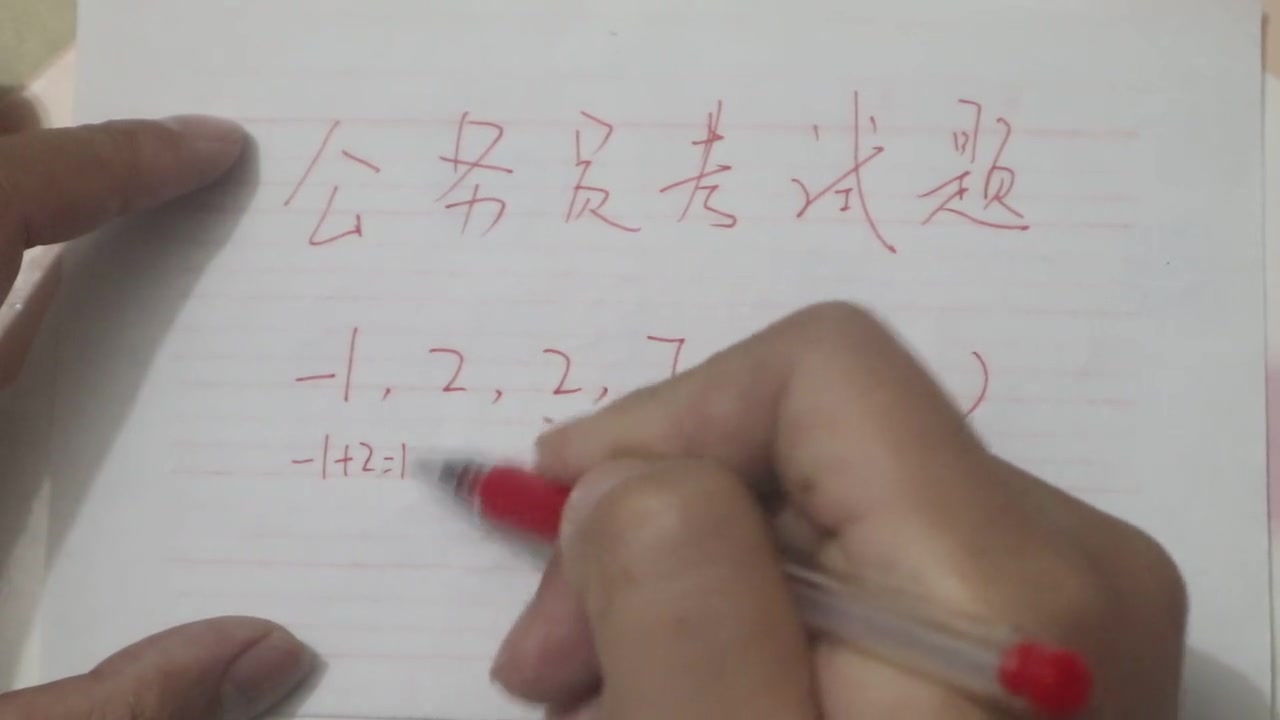 公务员考试题
-1, 2, 2, 7 )
-1+2=1